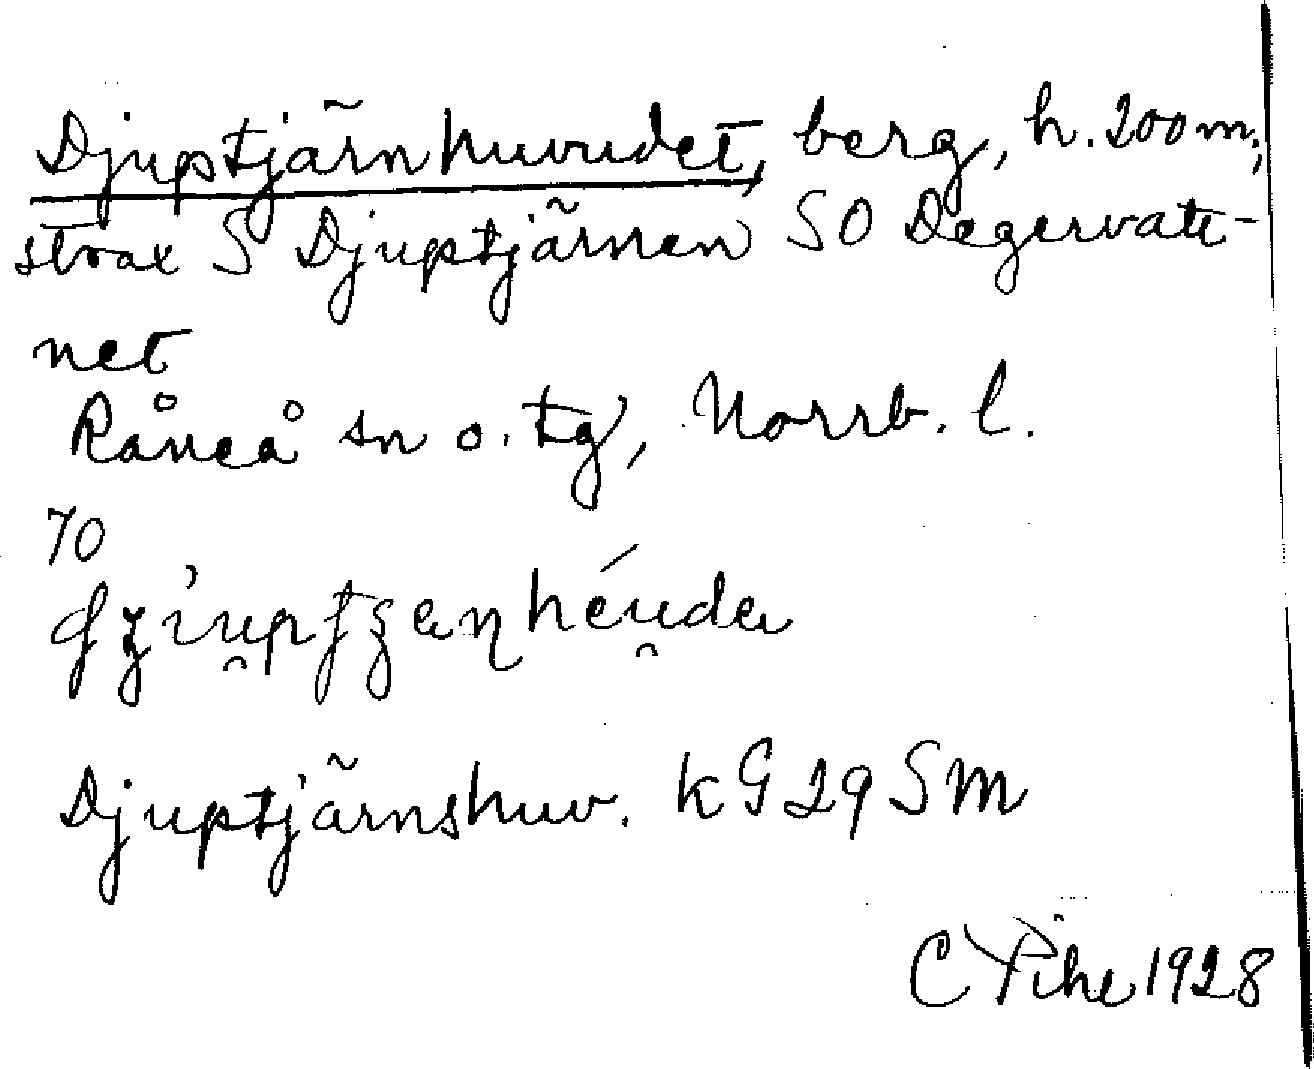 Djuptjärnhuvudet, berg, h. 200 m;
strax S Djuptjärnen SO Degervatt-
net
Råneå sn o. tg, Norrb. l.
70
Djuptjärnshuv. kG 29 SM
C Pihl 1928